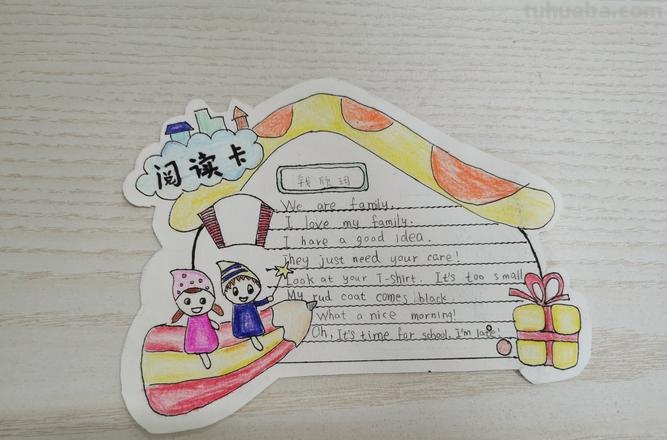 tuhuaba.com
阅读卡
We are family.
I love my family.
I have a good idea.
They just need your care!
Look at your T-shirt. It's too small
My rud coat comes black
What a nice morning!
Oh, It's time for school. I'm late!